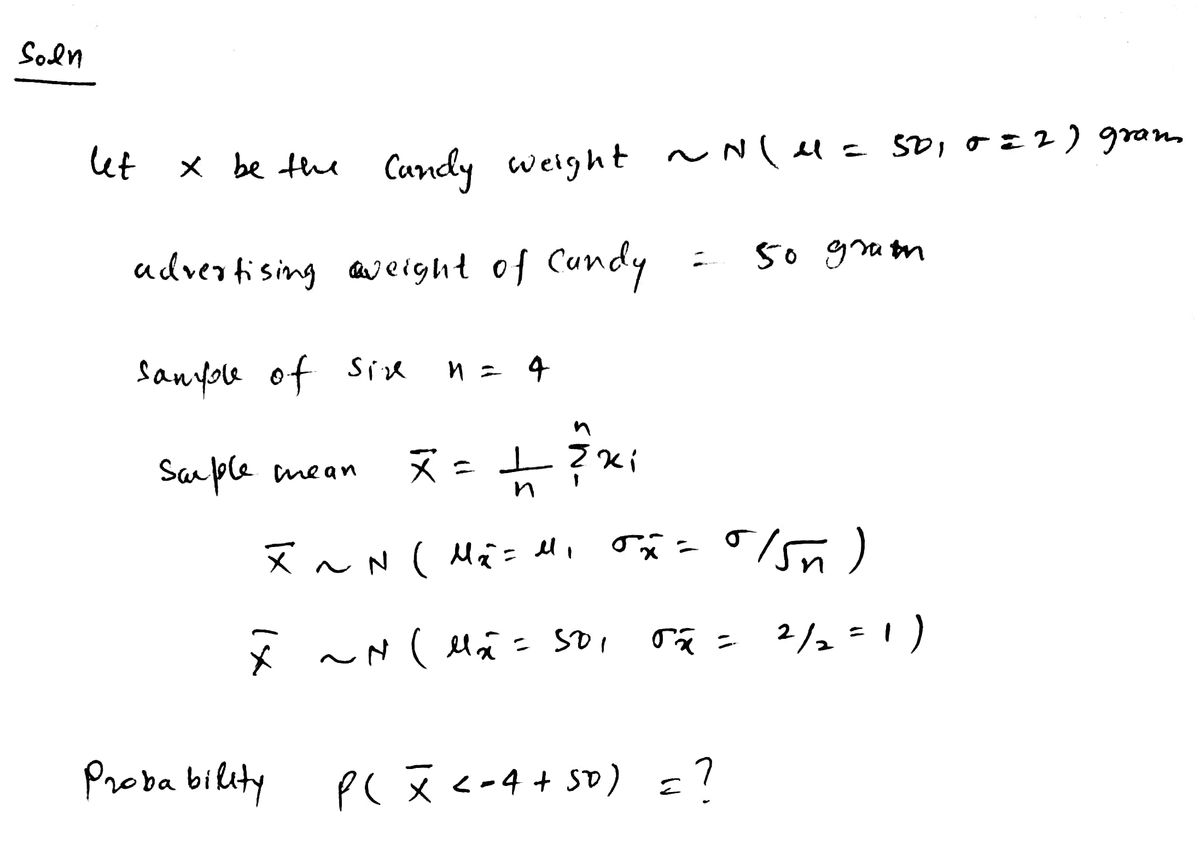 Soln
let x be the Candy weight ~ N ( μ = 50, σ = 2 ) gram
advertising weight of Candy = 50 gram
Sample of size n = 4
Sample mean x̄ = 1/n Σ₁ⁿ xi
x̄ ~ N ( μx̄ = μ, σx̄ = σ/√n )
x̄ ~ N ( μx̄ = 50, σx̄ = 2/2 = 1 )
Probability P( x̄ < -4 + 50 ) = ?